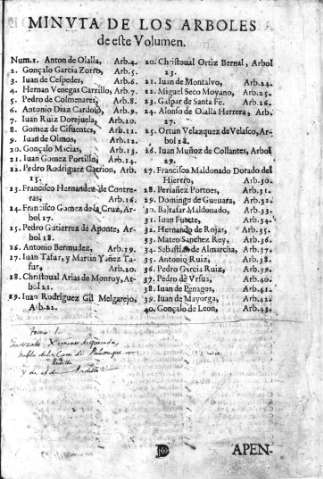 MINVTA DE LOS ARBOLES
de este Volumen.
Num.1. Anton de Olalla, Arb.4.
2. Gonçalo Garcia Zorro, Arb.5.
3. Iuan de Cespedes, Arb.6.
4. Hernan Venegas Carrillo, Arb.7.
5. Pedro de Colmenares, Arb.8.
6. Antonio Diaz Cardoso, Arb.9.
7. Iuan Ruiz Dorejuela, Arb.10.
8. Gomez de Cifuentes, Arb.11.
9. Iuan de Olmos, Arb.12.
10. Gonçalo Macias, Arb.13.
11. Iuan Gomez Portillo, Arb.14.
12. Pedro Rodriguez Arb.
15.
13. Francisco Hernandez de Contre-
ras, Arb.16.
14. Francisco Gomez de la Cruz, Ar-
bol 17.
15. Pedro Gutierrez de Aponte, Ar-
bol 18.
16. Antonio Bermudez, Arb.19.
17. Iuan Tafur, y Martin Yañez Ta-
fur, Arb.20.
18. Christoual Arias de Monroy, Ar-
bol 21.
19. Iuan Rodriguez Gil Melgarejo,
Arb.22.
20. Christoual Ortiz Bernal, Arbol
23.
21. Iuan de Montalvo, Arb.24.
22. Miguel Seco Moyano, Arb.25.
23. Gaspar de Santa Fe, Arb.26.
24. Alonso de Olalla Herrera, Arb.
27.
25. Ortun Velazquez de Velasco, Ar-
bol 28.
26. Iuan Muñoz de Collantes, Arbol
29.
27. Francisco Maldonado Dorado del
Hierro, Arb.30.
28. Periañez Portoes, Arb.31.
29. Domingo de Gueuara, Arb.32.
30. Baltasar Maldonado, Arb.33.
31. Iuan Fuerte, Arb.34.
32. Hernando de Rojas, Arb.35.
33. Mateo Sanchez Rey, Arb.36.
34. Sebastian de Almarcha, Arb.37.
35. Antonio Ruiz, Arb.38.
36. Pedro Garcia Ruiz, Arb.39.
37. Pedro de Vrsua, Arb.40.
38. Iuan de Penagos, Arb.41.
39. Iuan de Mayorga, Arb.42.
40. Gonçalo de Leon, Arb.43.
Tomo 1.
APEN-